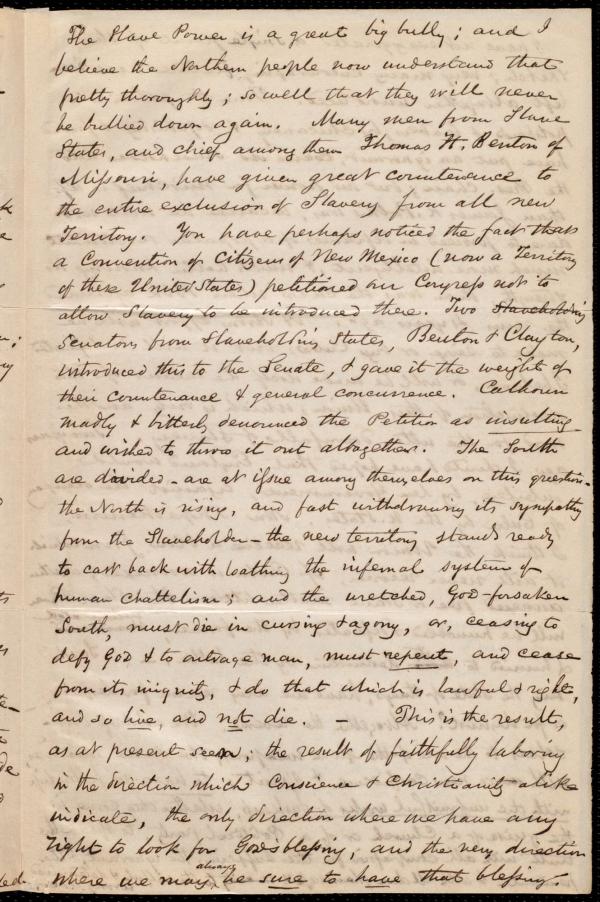 The Slave Power is a great big bully; and I
believe the Northern people now understand that
pretty thoroughly; so well that they will never
be bullied down again. Many men from Slave
States, and chief among them Thomas H. Benton of
Missouri, have given great countenance to
the entire exclusion of Slavery from all new
Territory. You have perhaps noticed the fact that
a Convention of Citizens of New Mexico (now a Territory
of these United States) petitioned our Congress not to
allow Slavery to be introduced there. Two Slaveholding
Senators from Slaveholding States, Benton & Clayton,
introduced this to the Senate, & gave it the weight of
their countenance & general concurrence. Calhoun
madly & bitterly denounced the Petition as insulting
and wished to throw it out altogether. The South
are divided - are at issue among themselves on this question -
the North is rising, and fast withdrawing its sympathy
from the Slaveholder - the new territory stands ready
to cast back with loathing the infernal system of
human chattelism; and the wretched, God-forsaken
South, must die in cursing & agony, or, ceasing to
defy God & to outrage man, must repent, and cease
from its iniquity, & do that which is lawful & right,
and so live, and not die. - This is the result,
as at present seen; the result of faithfully laboring
in the direction which Conscience & Christianity alike
indicate, the only direction where we have any
right to look for God's blessing, and the very direction
where we may always be sure to have that blessing.